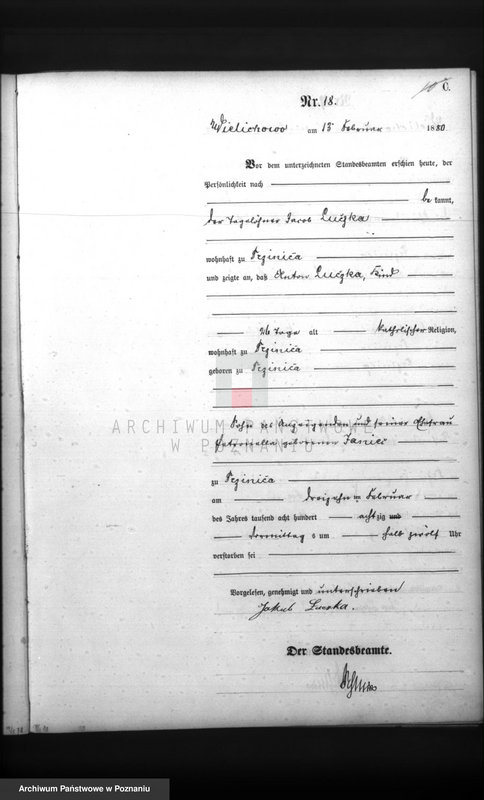 C.
Nr. 18.
Wielichowo am 13 Februar 1880
Vor dem unterzeichneten Standesbeamten erschien heute, der
Persönlichkeit nach
be kannt,
der Tagelöhner Jacob
wohnhaft zu
und zeigte an, daß Anton Kind
Tage alt katholischer Religion,
wohnhaft zu
geboren zu
ARCHIWUM PAŃSTWOWE
W POZNANIU
Sohn des Anzeigenden und seiner Ehefrau
Petronella geborenen
zu
am dreizehn ten Februar
des Jahres tausend acht hundert acht zig und
Vormittag s um halb zwölf Uhr
verstorben sei
Vorgelesen, genehmigt und unterschrieben
Jakub
Der Standesbeamte.
Archiwum Państwowe w Poznaniu